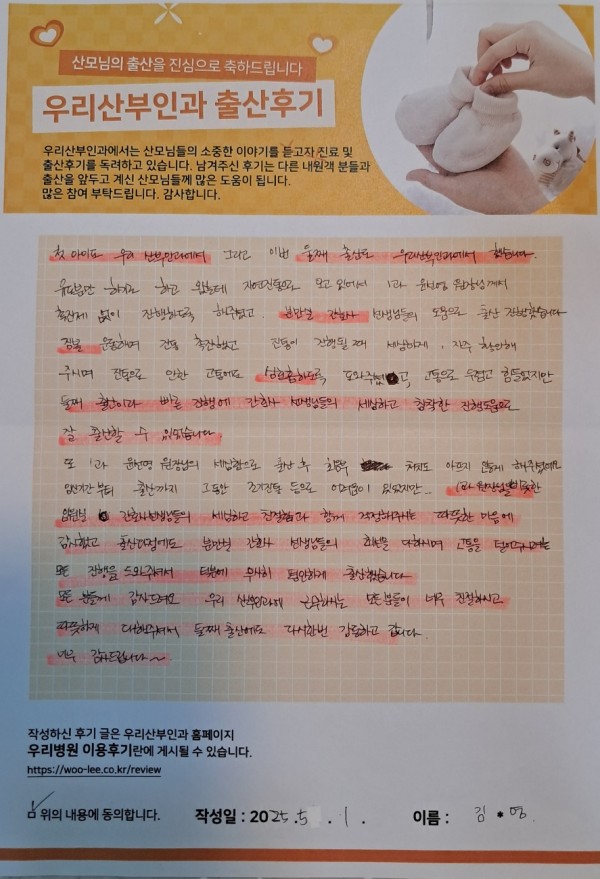 산모님의 출산을 진심으로 축하드립니다
우리산부인과 출산후기
우리산부인과에서는 산모님들의 소중한 이야기를 듣고자 진료 및
출산후기를 독려하고 있습니다. 남겨주신 후기는 다른 내원객 분들과
출산을 앞두고 계신 산모님들께 많은 도움이 됩니다.
많은 참여 부탁드립니다. 감사합니다.
첫 아이도 우리 산부인과에서 그리고 이번 둘째 출산도 우리산부인과에서 했습니다.
하고 있었는데 자연진통으로 오고 있어서 1과 원장님께서
촉진제 없이 진행하도록 해주셨고, 분만실 간호사 선생님들의 도움으로 출산 진행했습니다
짐볼 운동하며 진통 촉진했고 진통이 진행될 때 세심하게, 자주 확인해
주시며 진통으로 인한 고통에도 심호흡하도록 도와주셨고, 고통으로 무섭고 힘들었지만
둘째 출산이라 빠른 진행에 간호사 선생님들의 세심하고 침착한 진행도움으로
잘 출산할 수 있었습니다
또 1과 원장님의 세심함으로 출산 후 회음부 처치도 아프지 않게 해주셨어요
임신기간부터 출산까지 그동안 조기진통 등으로 어려움이 있었지만... 1과 원장님을 비롯한
간호사선생님들의 세심하고 친절함과 함께 걱정해주시는 따뜻한 마음에
감사했고 출산과정에도 분만실 간호사 선생님들의 최선을 다하시며 고통을 덜어주시려는
모든 진행을 도와주셔서 덕분에 무사히 편안하게 출산했습니다
모든 분들께 감사드려요 우리 산부인과에 근무하시는 모든분들이 너무 친절하시고
따뜻하게 대해주셔서 둘째 출산에도 다시한번 감동하고 갑니다.
너무 감사드립니다~.
작성하신 후기 글은 우리산부인과 홈페이지
우리병원 이용후기란에 게시될 수 있습니다.
https://woo-lee.co.kr/review
위의 내용에 동의합니다. 작성일 : 2025.5.1. 이름 : 김*영.